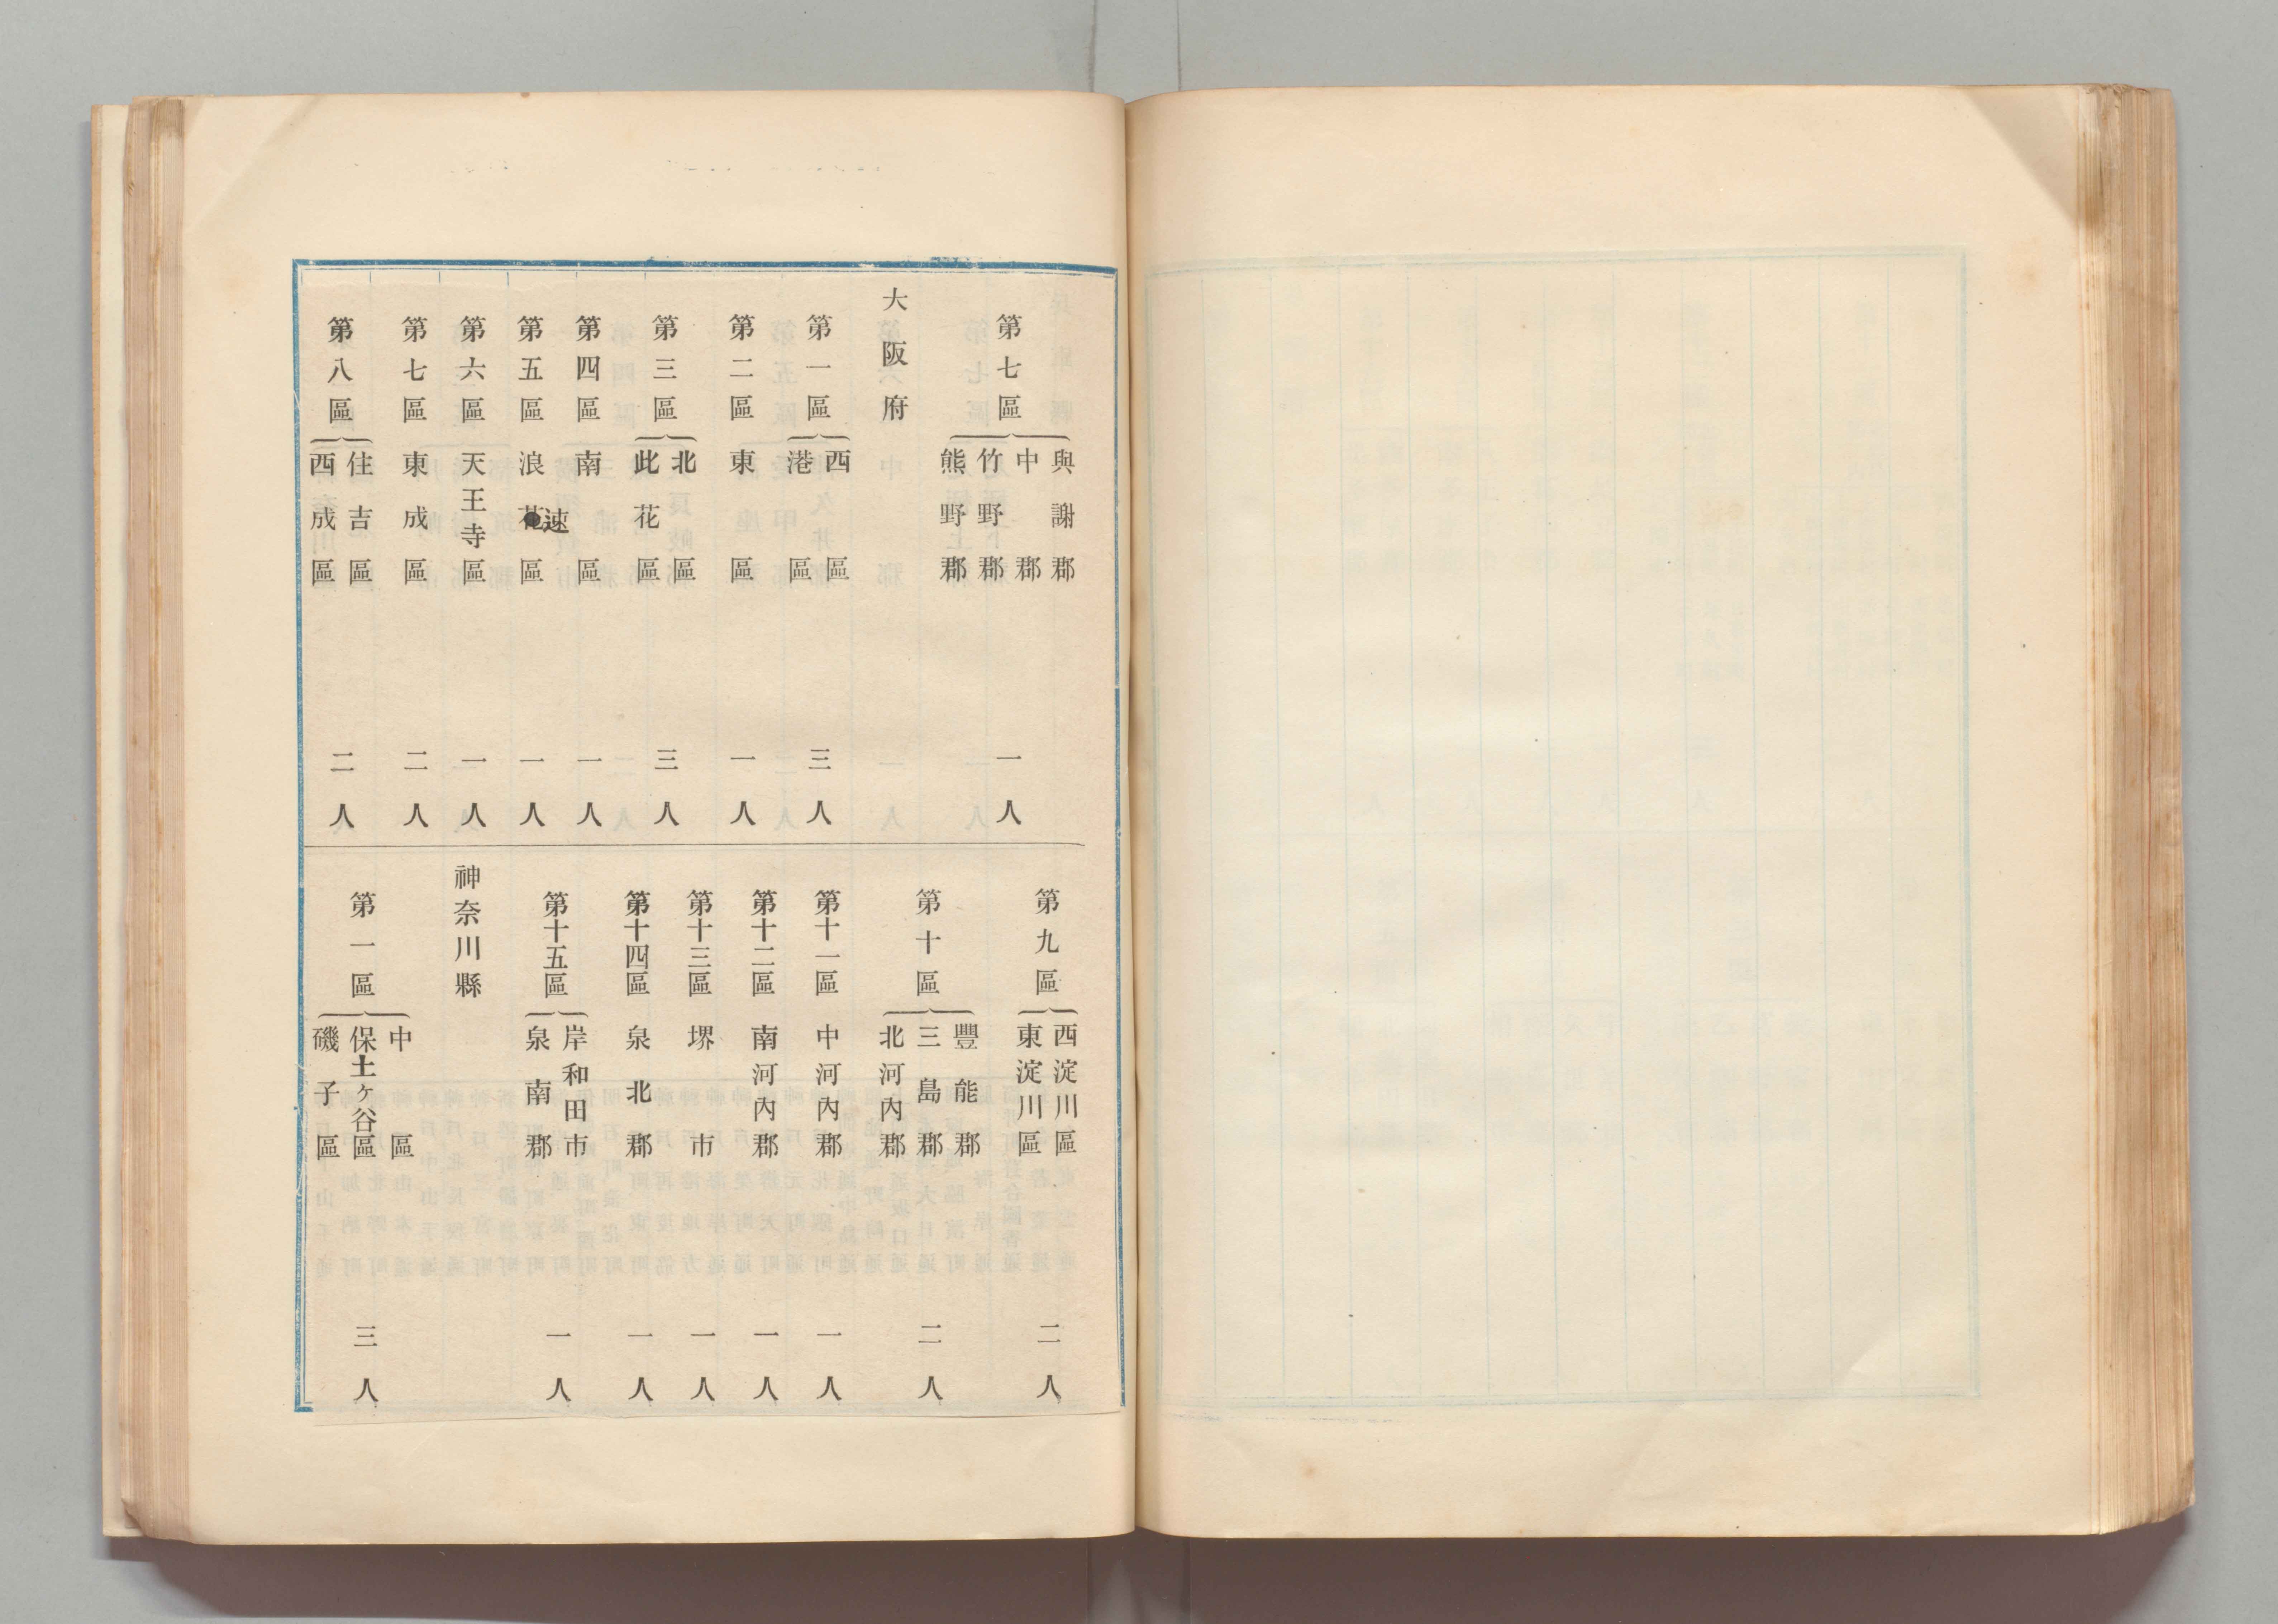 第七區
與謝郡
中郡
竹野郡
熊野郡
一人
大阪府
第一區
西區
港區
三人
第二區
東區
一人
第三區
北區
此花區
三人
第四區
南區
一人
第五區
浪花區
速
一人
第六區
天王寺區
一人
第七區
東成區
二人
第八區
住吉區
西成區
二人
第九區
西淀川區
東淀川區
二人
第十區
豐能郡
三島郡
北河內郡
二人
第十一區
中河內郡
一人
第十二區
南河內郡
一人
第十三區
堺市
一人
第十四區
泉北郡
一人
第十五區
岸和田市
泉南郡
一人
神奈川縣
第一區
中區
保土ヶ谷區
磯子區
三人